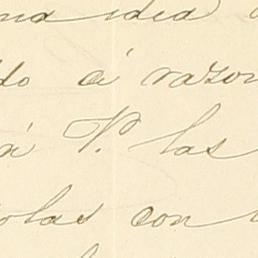 una idea
do á razon
á V. las
olas con